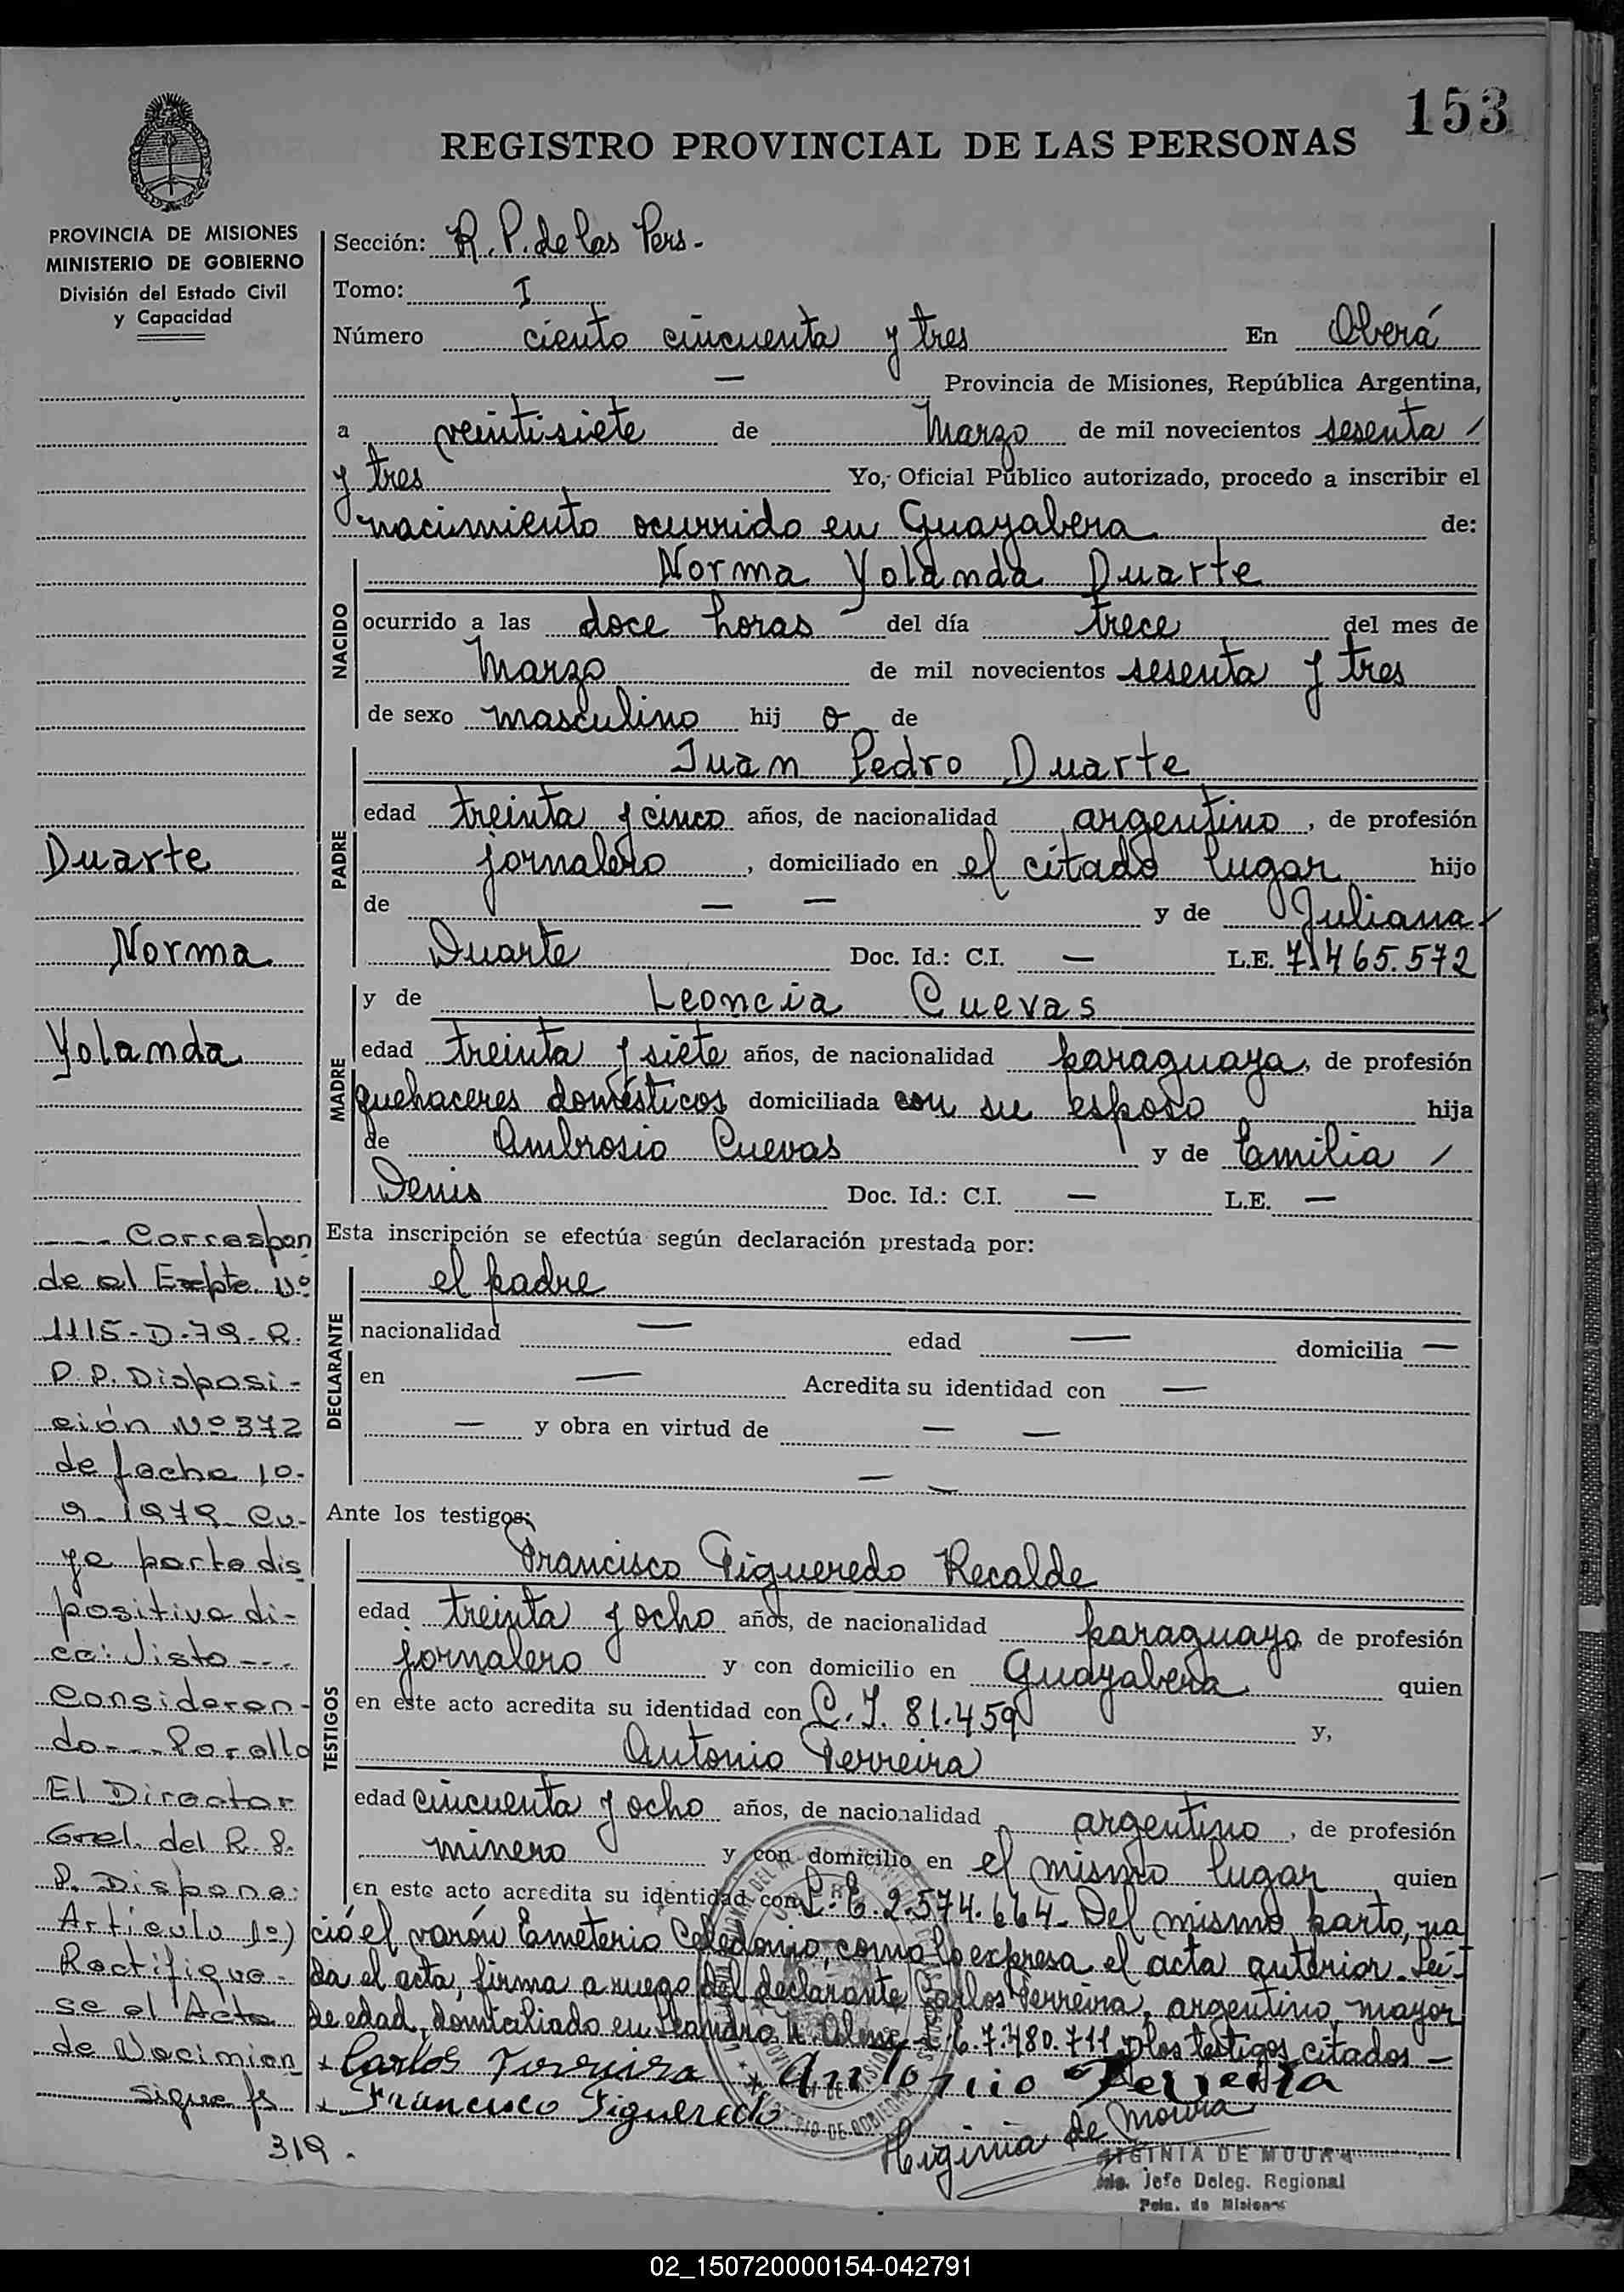 153
REGISTRO PROVINCIAL DE LAS PERSONAS
PROVINCIA DE MISIONES
MINISTERIO DE GOBIERNO
División del Estado Civil
y Capacidad
Sección: R. P. de las Pers.-
Tomo: I
Número ciento cincuenta y tres En Oberá
— Provincia de Misiones, República Argentina,
a veintisiete de Marzo de mil novecientos sesenta /
y tres Yo, Oficial Público autorizado, procedo a inscribir el
nacimiento ocurrido en Guayabera de:
NACIDO
Norma Yolanda Duarte
ocurrido a las doce horas del día trece del mes de
Marzo de mil novecientos sesenta y tres
de sexo masculino hij o de
PADRE
Juan Pedro Duarte
edad treinta y cinco años, de nacionalidad argentino, de profesión
jornalero, domiciliado en el citado lugar hijo
de — — y de Juliana /
Duarte Doc. Id.: C.I. — L.E. 7.465.572
MADRE
y de Leoncia Cuevas
edad treinta y siete años, de nacionalidad paraguaya, de profesión
quehaceres domésticos domiciliada con su esposo hija
de Ambrosio Cuevas y de Emilia /
Denis Doc. Id.: C.I. — L.E. —
Esta inscripción se efectúa según declaración prestada por:
DECLARANTE
el padre
nacionalidad — edad — domicilia —
en — Acredita su identidad con —
— y obra en virtud de — —
— —
Ante los testigos:
TESTIGOS
Francisco Figueredo Recalde
edad treinta y ocho años, de nacionalidad paraguayo, de profesión
jornalero y con domicilio en Guayabera quien
en este acto acredita su identidad con C. I. 81.459 y,
Antonio Ferreira
edad cincuenta y ocho años, de nacionalidad argentino, de profesión
minero y con domicilio en el mismo lugar quien
en este acto acredita su identidad con L. E. 2.574.664. Del mismo parto, na
ció el varón Emeterio Celedonio, como lo expresa el acta anterior. Leí-
da el acta, firma a ruego del declarante Carlos Ferreira, argentino, mayor
de edad, domiciliado en Leandro N. Alem L.E. 7.480.711 y los testigos citados —
Carlos Ferreira Antonio Ferreira
Francisco Figueredo
Higinia de Moura
HIGINIA DE MOURA
Jefe Deleg. Regional
Pcia. de Misiones
Duarte
Norma
Yolanda
---- Correspon
de al Expte. Nº
1115-D-79-R.
P. P. Disposi-
ción Nº 372
de fecha 10-
9-1979 Cu-
ya parte dis
positiva di-
ce: Visto ---
Consideran-
do --- Por ello
El Director
Gral. del R. P.
P. Dispone:
Artículo 1º)
Rectifique-
se el Acta
de Nacimien
sigue fs
319.
02_150720000154-042791